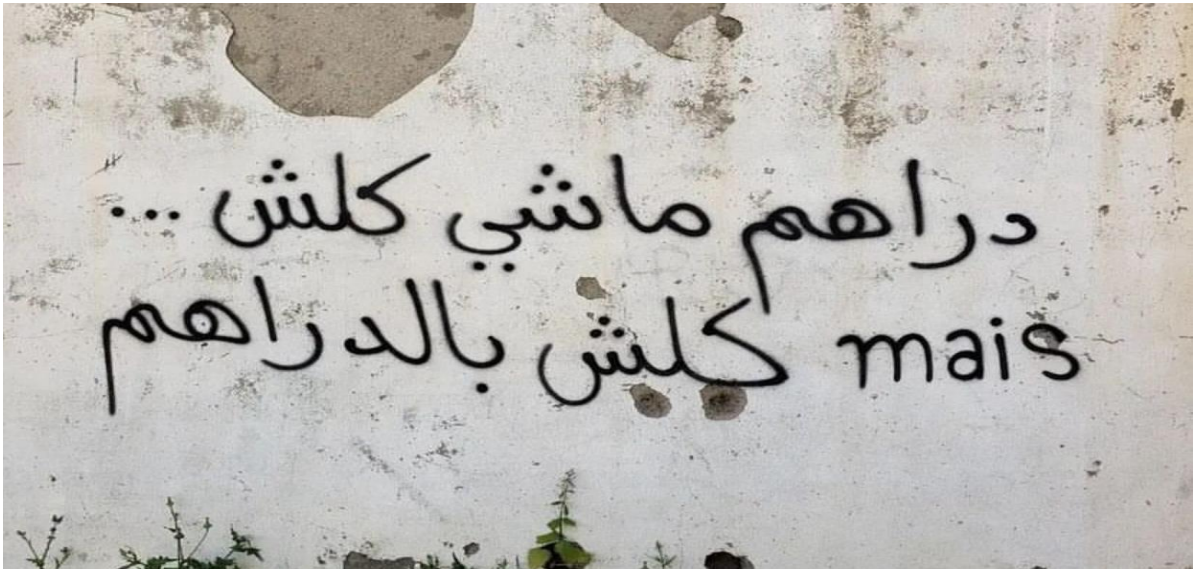 دراهم ماشي كلش ...
mais كلش بالدراهم